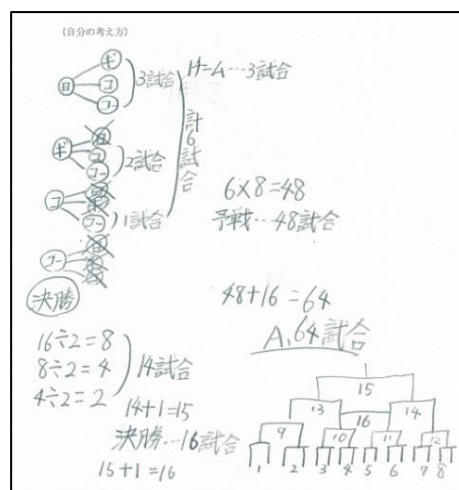 (自分の考え方)
日 ギ コ コー 3試合
1チーム…3試合
ギ 日 コ コー 2試合
計6試合
コ コー 1試合
6×8=48
予戦…48試合
コー
決勝
48+16=64
A,64試合
16÷2=8
8÷2=4
4÷2=2
14試合
14+1=15
決勝…16試合
15+1=16
15
13 14
16
9 10 11 12
1 2 3 4 5 6 7 8